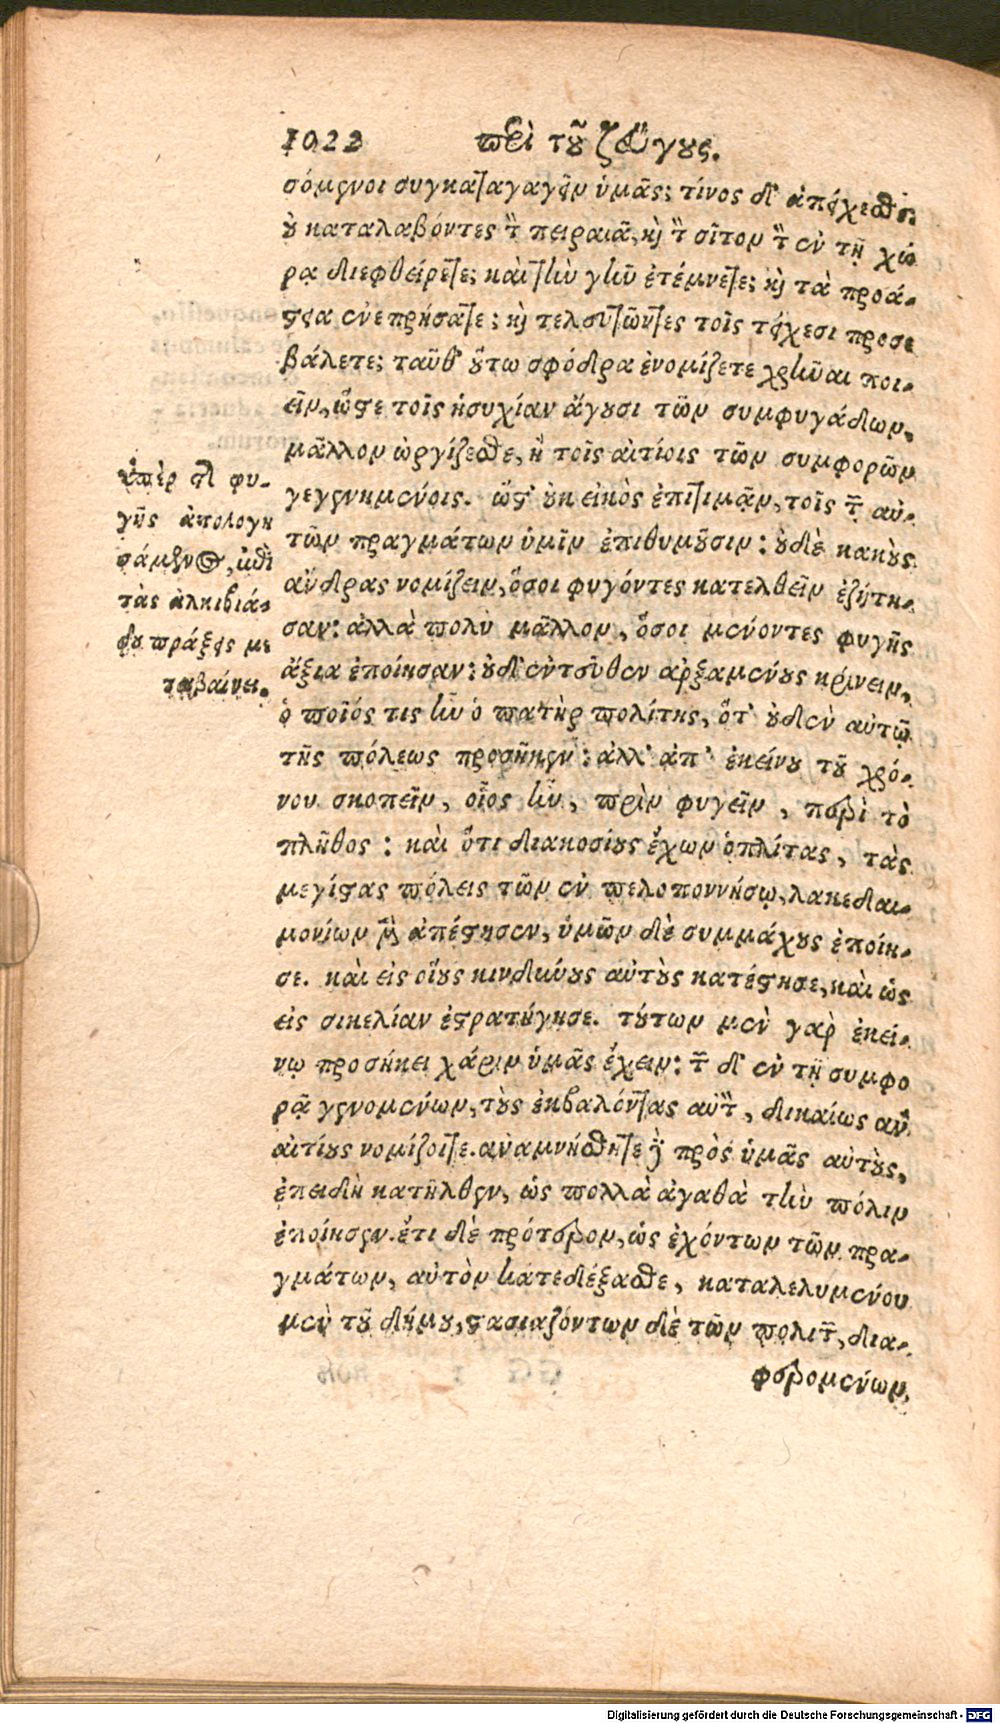 1022 περὶ τοῦ ζεύγους.
σόμενοι συγκαταγαγεῖν ὑμᾶς; τίνος δ' ἀπέχεσθε;
οὐ καταλαβόντες τὸν πειραιᾶ, καὶ τὸν σῖτον τὸν ἐν τῇ χώ-
ρᾳ διεφθείρετε; καὶ τὴν γῆν ἐτέμνετε; καὶ τὰ προά-
στεια ἐνεπρήσατε; καὶ τελευτῶντες τοῖς τείχεσι προσε
βάλετε; ταῦθ' οὕτω σφόδρα ἐνομίζετε χρῆναι ποι-
εῖν, ὥστε τοῖς ἡσυχίαν ἄγουσι τῶν συμφυγάδων,
μᾶλλον ὠργίζεσθε, ἢ τοῖς αἰτίοις τῶν συμφορῶν
γεγενημένοις. ὥστ' οὐκ εἰκὸς ἐπιτιμᾷν, τοῖς τῶν αὐ-
τῶν πραγμάτων ὑμῖν ἐπιθυμοῦσιν: οὐδὲ κακοὺς
ἄνδρας νομίζειν, ὅσοι φυγόντες κατελθεῖν ἐζήτη-
σαν: ἀλλὰ πολὺ μᾶλλον, ὅσοι μένοντες φυγῆς
ἄξια ἐποίησαν: οὐδ' ἐντεῦθεν ἀρξαμένους κρίνειν,
ὁ ποῖός τις ἦν ὁ πατὴρ πολίτης, ὅτ' οὐδὲν αὐτῷ
τῆς πόλεως προσῆκεν: ἀλλ' ἀπ' ἐκείνου τοῦ χρό-
νου σκοπεῖν, οἷος ἦν, πρὶν φυγεῖν, περὶ τὸ
πλῆθος: καὶ ὅτι διακοσίους ἔχων ὁπλίτας, τὰς
μεγίστας πόλεις τῶν ἐν πελοποννήσῳ, λακεδαι-
μονίων μὲν ἀπέστησεν, ὑμῶν δὲ συμμάχους ἐποίη-
σε. καὶ εἰς οἵους κινδύνους αὐτοὺς κατέστησε, καὶ ὡς
εἰς σικελίαν ἐστρατήγησε. τούτων μὲν γὰρ ἐκεί-
νῳ προσήκει χάριν ὑμᾶς ἔχειν: τῶν δ' ἐν τῇ συμφο
ρᾷ γενομένων, τοὺς ἐκβαλόντας αὐτὸν, δικαίως ἂν
αἰτίους νομίζοιτε. ἀναμνήσθητε δὲ πρὸς ὑμᾶς αὐτοὺς,
ἐπειδὴ κατῆλθεν, ὡς πολλὰ ἀγαθὰ τὴν πόλιν
ἐποίησεν. ἔτι δὲ πρότερον, ὡς ἐχόντων τῶν πρα-
γμάτων, αὐτὸν κατεδέξασθε, καταλελυμένου
μὲν τοῦ δήμου, στασιαζόντων δὲ τῶν πολιτῶν, δια-
φερομένων
ὑπὲρ τῆς φυ-
γῆς ἀπολογη
σάμενος, ἐπὶ
τὰς ἀλκιβιά-
δου πράξεις με
ταβαίνει.
Digitalisierung gefördert durch die Deutsche Forschungsgemeinschaft - DFG